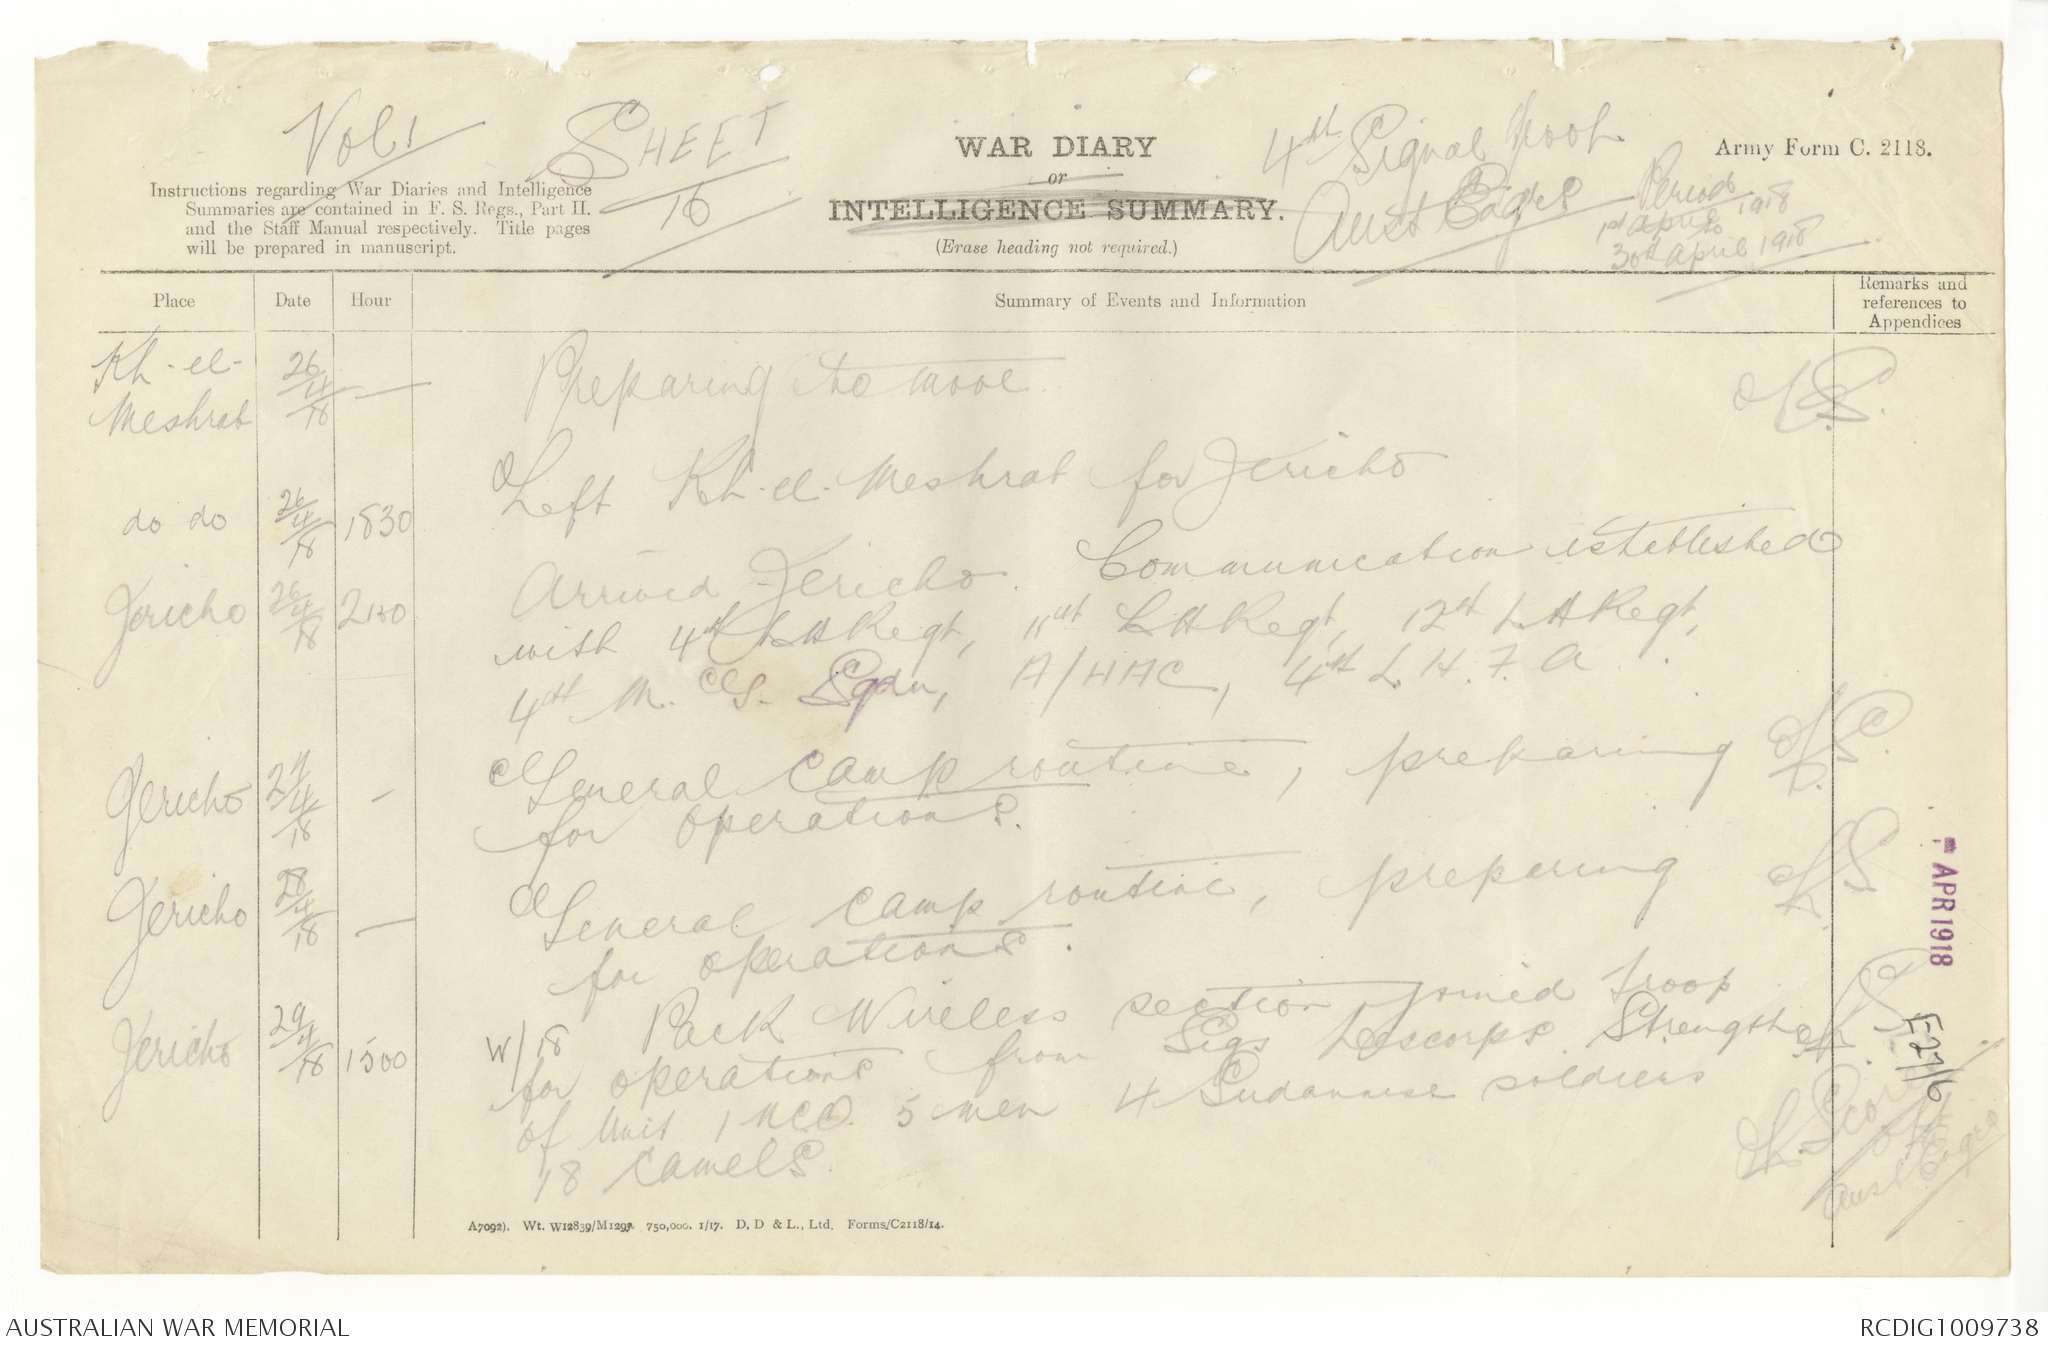 Vol 1
SHEET
16
WAR DIARY
or
INTELLIGENCE SUMMARY.
(Erase heading not required.)
4th Signal Troop
Aust Engrs
Period
1st April to 1918
30th April 1918
Army Form C. 2118.
Instructions regarding War Diaries and Intelligence
Summaries are contained in F. S. Regs., Part II.
and the Staff Manual respectively. Title pages
will be prepared in manuscript.
Place Date Hour Summary of Events and Information Remarks and references to Appendices
Kh-el-Meshrab 26/4/18 — Preparing to move.
do do 26/4/18 1830 Left Kh-el-Meshrab for Jericho
Jericho 26/4/18 2130 Arrived Jericho. Communication established
with 4th L H Regt, 11th L H Regt, 12th L H Regt,
4th M. G. Sqdn, A/HAC, 4th L. H. F. A.
Jericho 27/4/18 - General camp routine, preparing
for operations.
Jericho 28/4/18 — General camp routine, preparing
for operations.
Jericho 29/4/18 1500 W/18 Pack Wireless section joined troop
for operations from Sigs Descorps. Strength
of Unit 1 NCO. 5 men 4 Sudannese soldiers
18 camels.
APR 1918
E27/6
Aust Engrs
A7092). Wt. W12839/M1297. 750,000. 1/17. D. D & L., Ltd. Forms/C2118/14.
AUSTRALIAN WAR MEMORIAL
RCDIG1009738